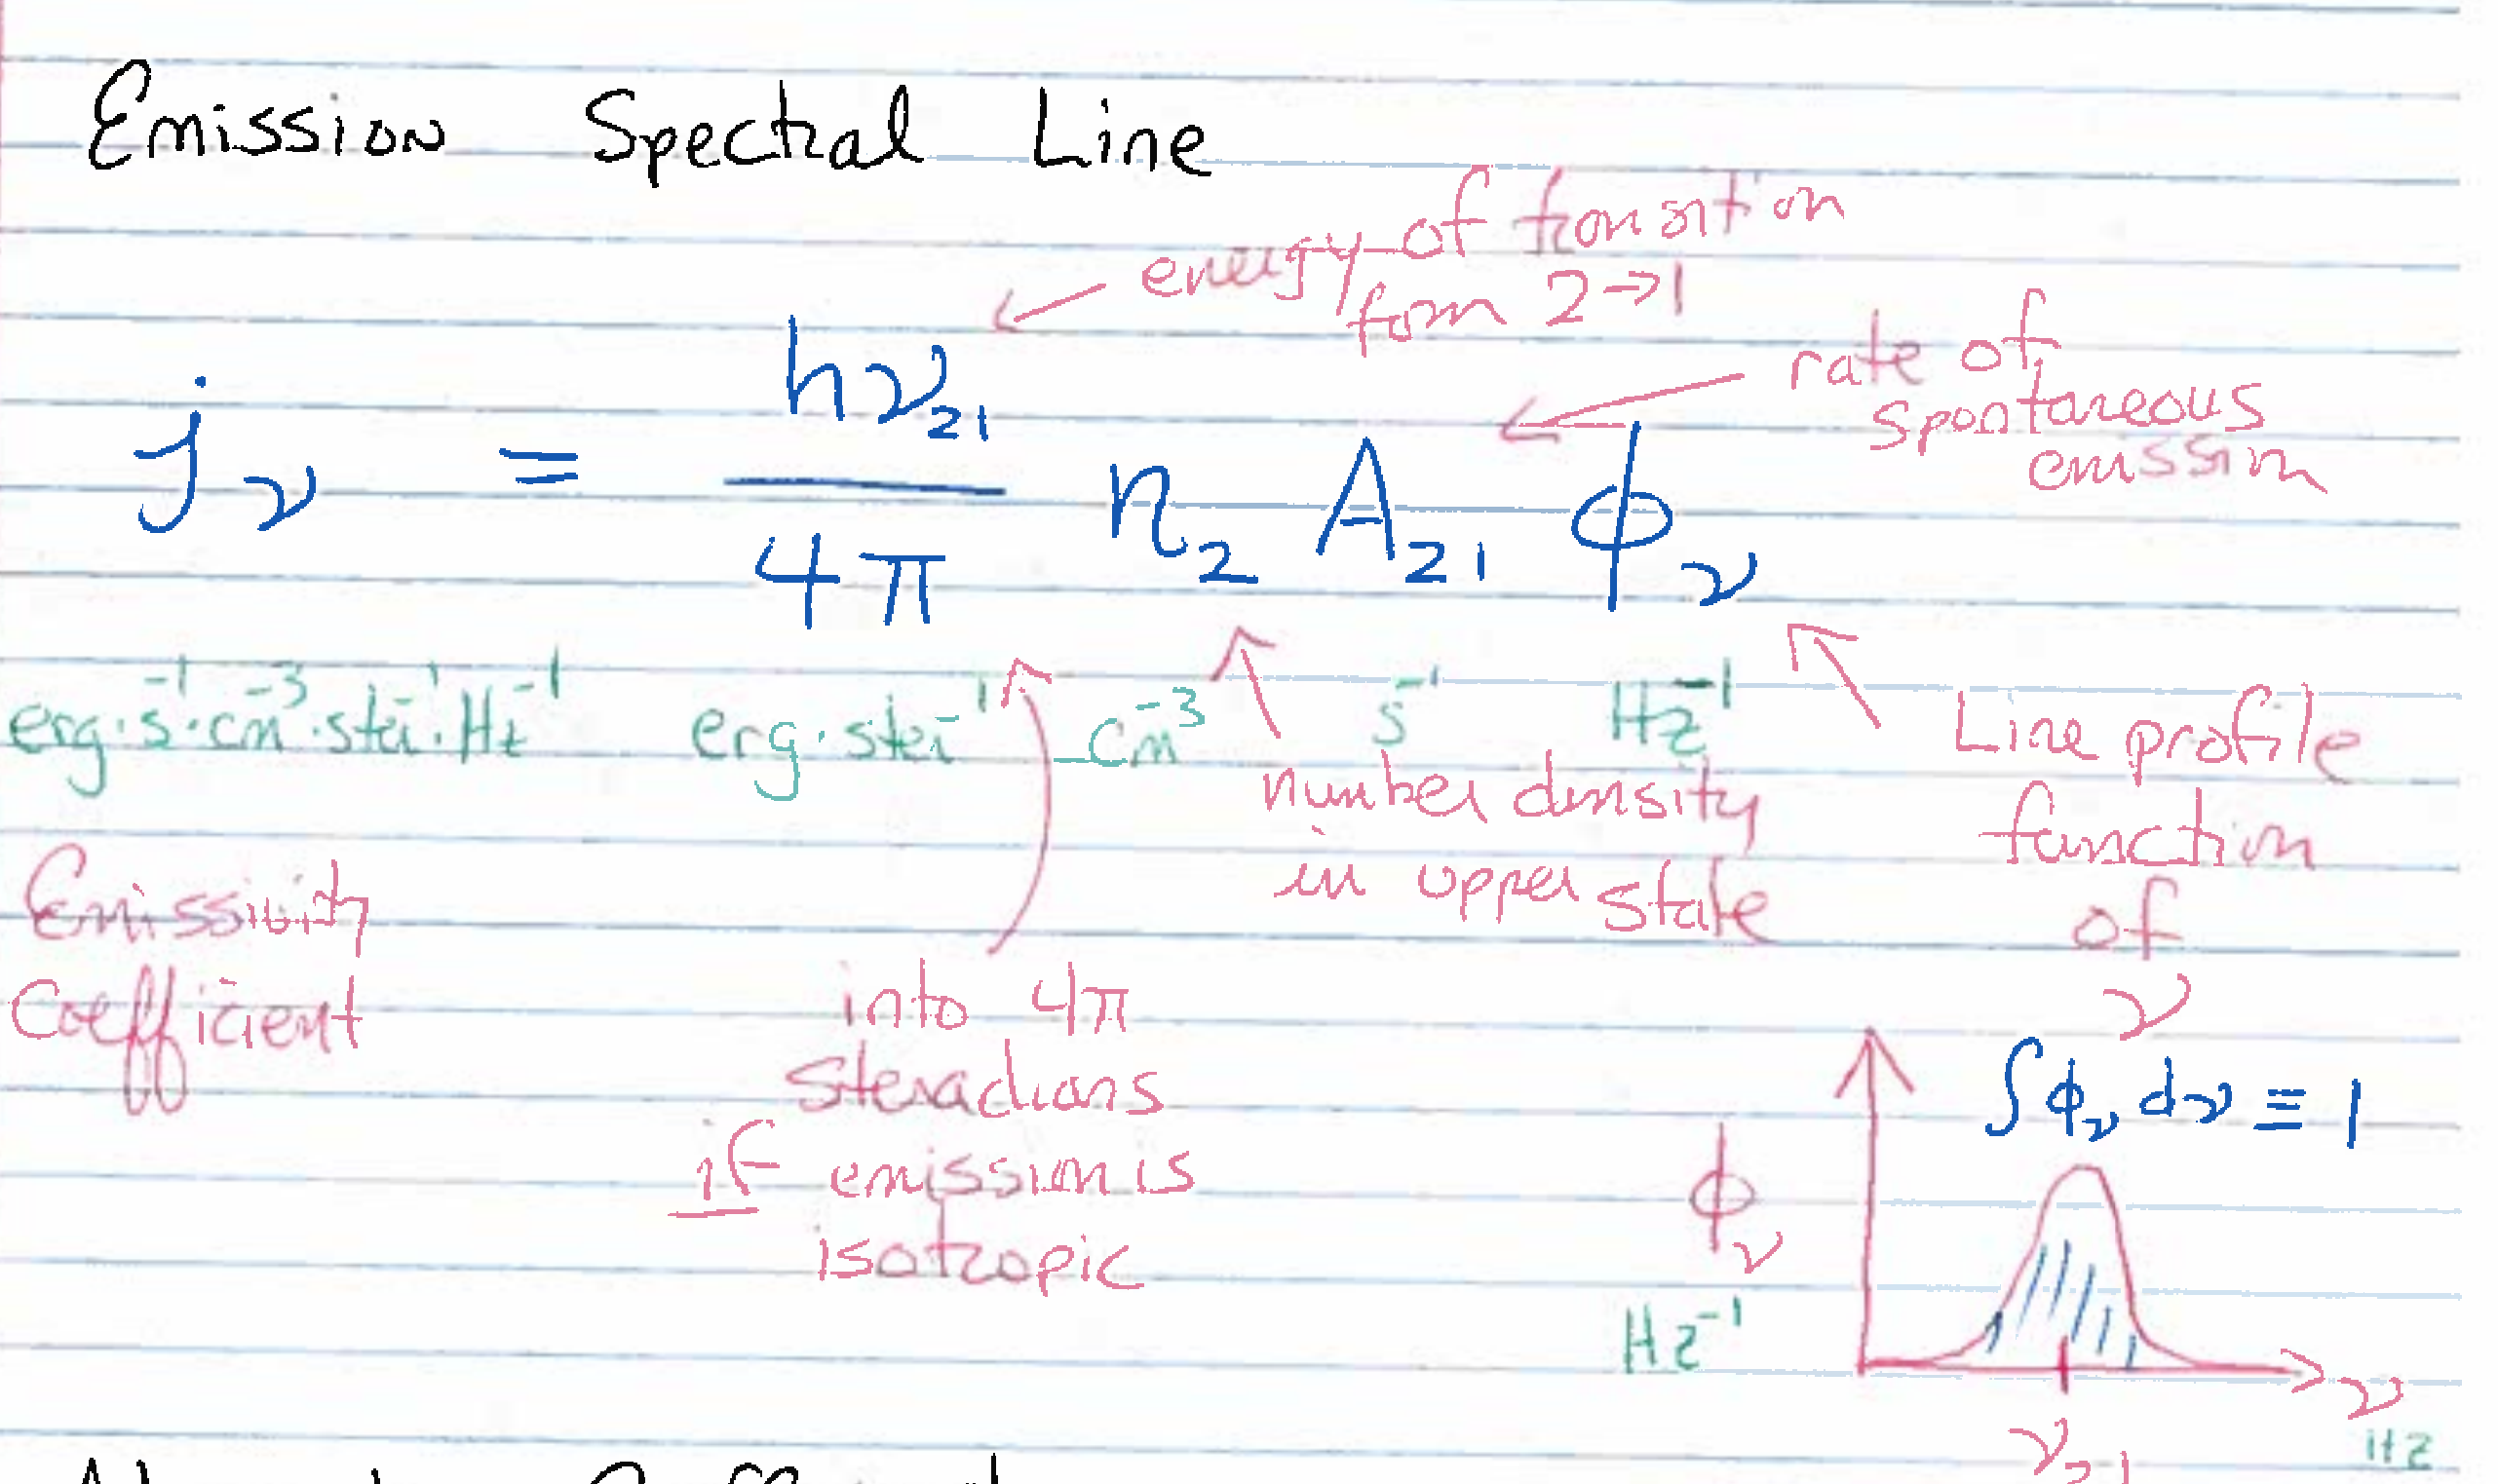 Emission Spectral Line
energy of transition
from 2→1
rate of
spontaneous
emission
j_ν = hν₂₁ / 4π n₂ A₂₁ ϕ_ν
erg·s⁻¹·cm⁻³·ster⁻¹·Hz⁻¹ erg·ster⁻¹ cm⁻³ s⁻¹ Hz⁻¹
Emissivity
Coefficient
into 4π
steradians
if emission is
isotropic
number density
in upper state
Line profile
function
of
ν
∫ϕ_ν dν ≡ 1
ϕ_ν
Hz⁻¹
ν
Hz
ν₂₁